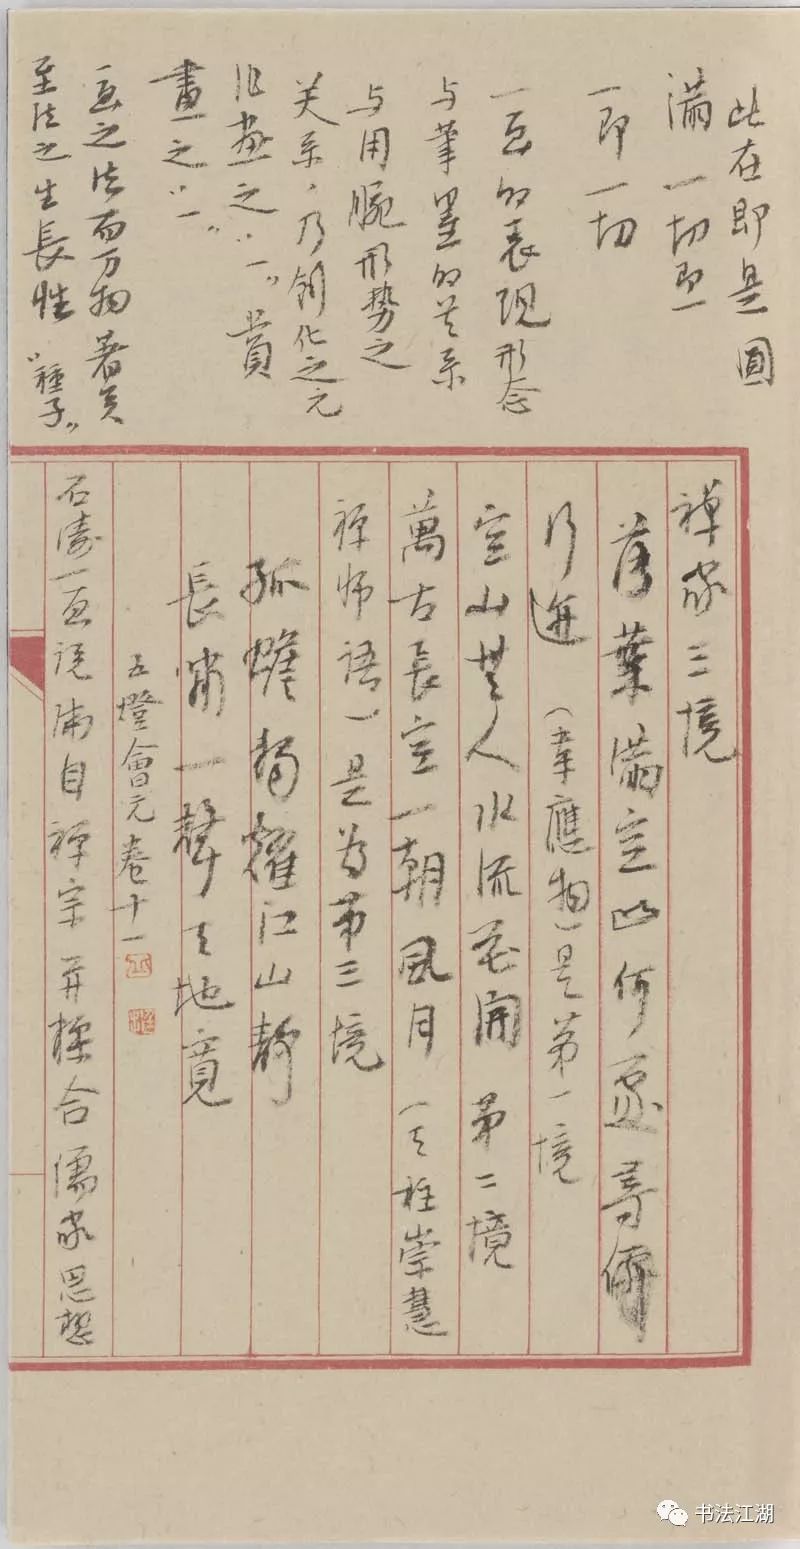 此在即是圓
满 一切即一
一即一切
一画的表现形态
与笔墨的关系
与用腕形势之
关系，乃创化之元
作画之“一”貫
畫之“一”
画之法而万物著矣
至法之生長性 “種子”
禅家三境
落葉滿空山何處尋
行迹（韋應物）是第一境
空山無人水流花開 第二境
萬古長空一朝風月（天柱崇慧
禅师語）是为第三境
孤蟾獨耀江山静
長嘯一聲天地寬
五燈會元卷十一
石濤一画说浦自禅宗并糅合儒家思想
书法江湖